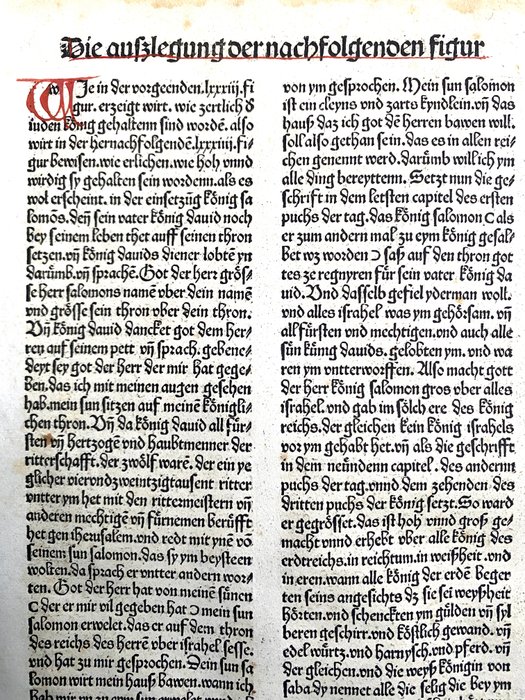 Die auſzlegung der nachfolgenden figur
WJe in der vorgeenden .lxxiij. fi
gur. erzeigt wirt. wie zertlich d̕
iuden kǒnig gehaltenn sind wordē. also
wirt in der hernachfolgendē .lxxiiij. fi⸗
gur bewisen. wie erlichen. wie hoh vnnd
wirdig sy gehalten sein wordenn. als es
wol erscheint. in der einsetzūg kǒnig sa
lomōs. deñ sein vater kǒnig dauid noch
bey seinem leben thet auff seinen thron
setzen. vñ kǒnig dauids diener lobtē yn
darūmb. vñ sprachē. Got der herr grǒs⸗
se herr salomons namē vber dein namē
vnd grǒsse sein thron vber dein thron.
Vñ kǒnig dauid dancket got dem her⸗
ren auf seinem pett vñ sprach. gebene⸗
deyt sey got der herr der mir hat gege⸗
ben. das ich mit meinen augen gesehen
hab. mein sun sitzen auf meinē kǒnigli⸗
chen thron. Vñ da kǒnig dauid all fúr⸗
sten vñ hertzogen vnd haubtmenner der
ritterschafft. der zwǒlf warē. der ein ye
glicher vierondzweintzigtausent ritter
vntter ym het mit den rittermeistern vñ
anderen mechtige vñ fúrnemen berúfft
het gen iherusalem. vnd redt mit ynē vō
seinem sun salomon. das sy ym beysteen
wolten. da sprach er vntter andern wor⸗
ten. Got der herr hat von meinē súnen
C der er mir vil gegeben hat Ɔ mein sun
salomon erwelet. das er auf dem thron
des reichs des herrē vber israhel sesse.
vnd hat zu mir gesprochen. Dein sun sa
lomon wirt mein hauß bawen. wann ich
von ym gesprochen. Mein sun salomon
ist ein cleyns vnd zarts kyndlein. vñ das
hauß daz ich got dē herren bawen will.
soll also gethan sein. das es in allen rei⸗
chen genennt werd. darúmb will ich ym
alle ding bereyttenn. Setzt nun die ge⸗
schrift in dem letsten capitel des ersten
puchs der tag. das kǒnig salomon C als
er zum andern mal zu eym kǒnig gesal⸗
bet wz worden Ɔ saß auf den thron got
tes ze regnyren fúr sein vater kǒnig da
uid. Vnd dasselb gefiel yderman woll.
vnd alles israhel was ym gehǒrsam. vñ
all fúrsten vnd mechtigen. vnd auch alle
sún kúnig dauids. gelobten ym. vnd wa
ren ym vntterworffen. Also macht gott
der herr kǒnig salomon gros vber alles
israhel. vnd gab im sǒlch ere des kǒnig
reichs. der gleichen kein kǒnig israhels
vor ym gehabt het. vñ als die geschrifft
in dem neúndenn capitel. des andernn
puchs der tag. vnnd dem zehenden des
dritten puchs der kǒnig setzt. So ward
er gegrǒsset. das ist hoh vnnd groß ge⸗
macht vnnd erhebt vber alle kǒnig des
erdtreichs. in reichtum. in weißheit. vnd
in eren. wann alle kǒnig der erdē beger
ten seins angesichts dz sie sei weyßheit
hǒrten. vnd schenckten ym gúlden vñ syl
beren geschirr. vnd kǒstlich gewand. vñ
edel wúrtz. vnd harnysch. vnd pferd. vñ
der gleichen. vnd die weyß kǒnigin von
saba dy nennet alle die selig die bey ym